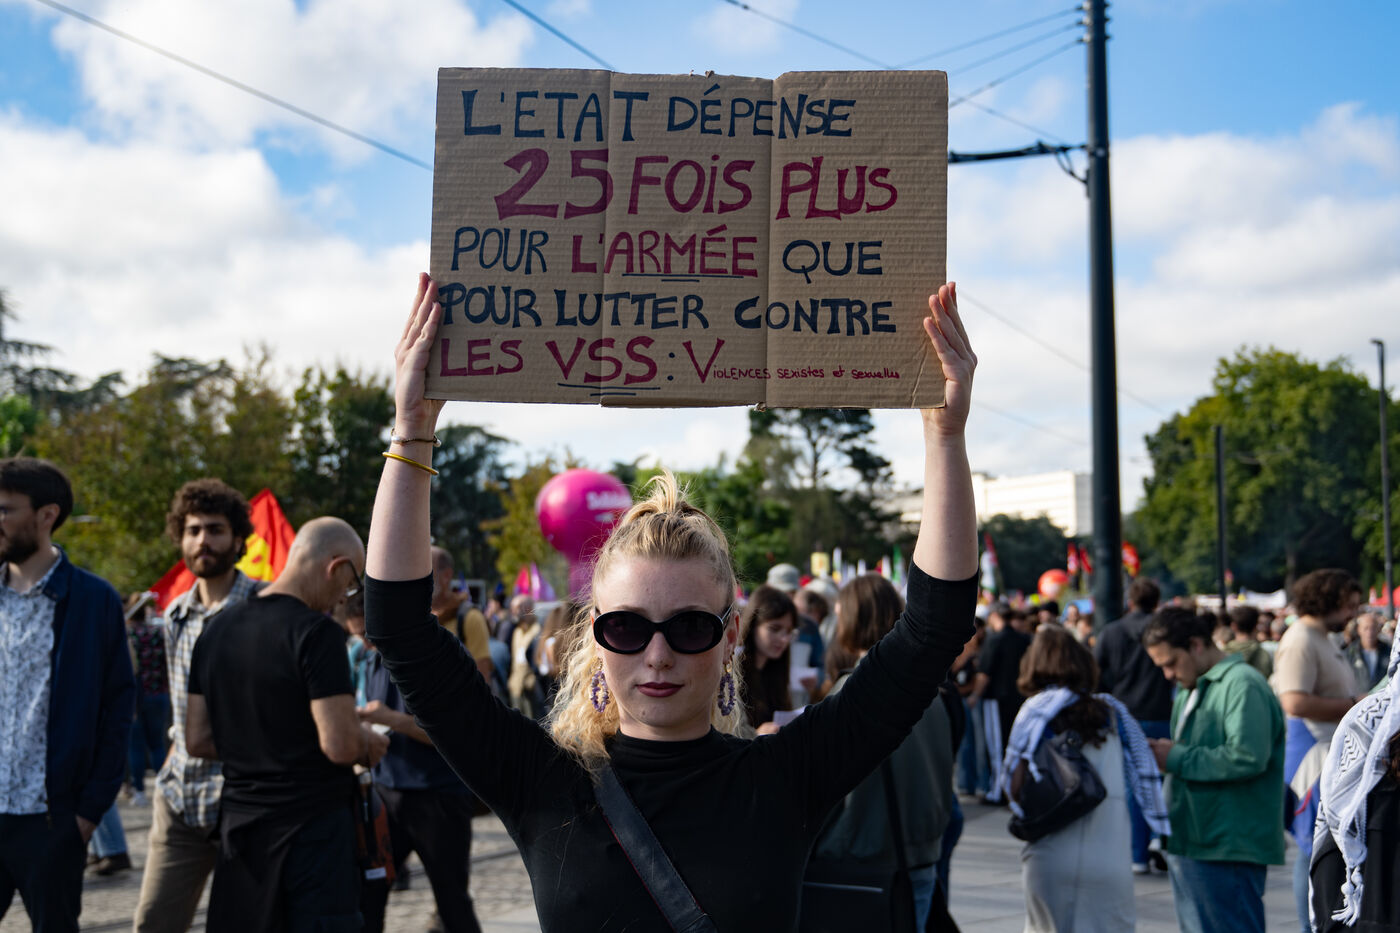 L'ETAT DÉPENSE
25 FOiS PLUS
POUR L'ARMÉE QUE
POUR LUTTER CONTRE
LES VSS : ViOLENCES sexistes et sexuelles